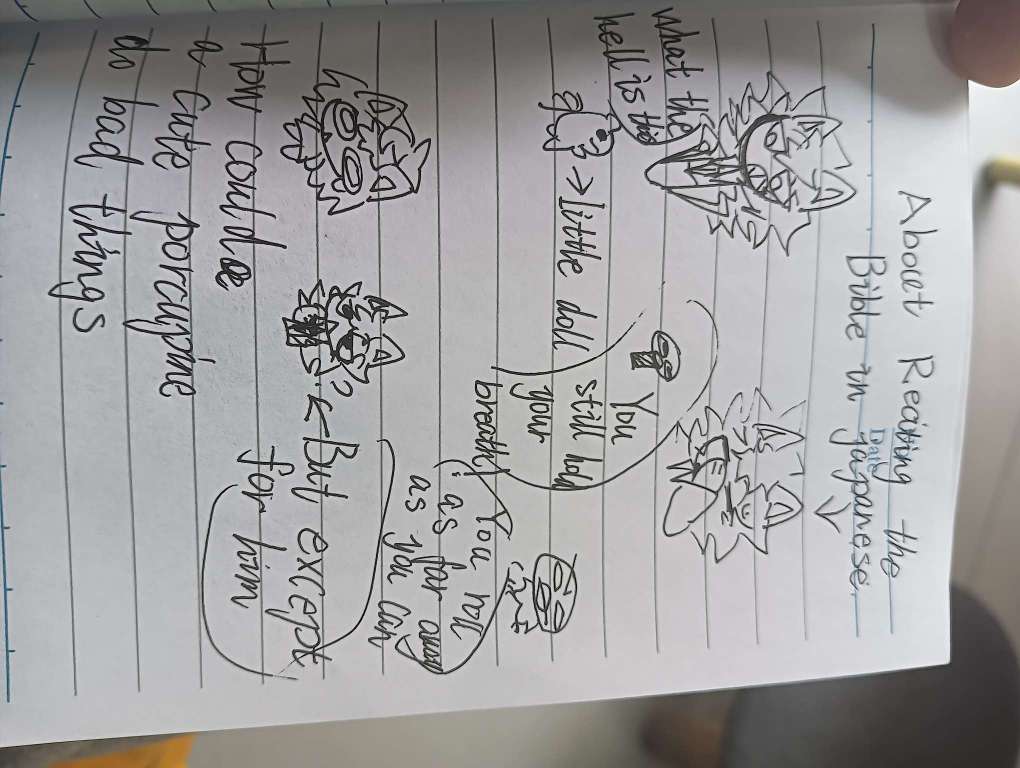 About Reating the
Bible in Japanese.
Date
What the
hell is this
→ little doll
You
still hold
your
breath!
You roll
as far away
as you can
But except
for him
How could
a cute porcupine
do bad things